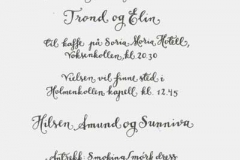 Trond og Elin
til kaffe på Soria Moria Hotell,
Voksenkollen kl. 20.30
Vielsen vil finne sted i
Holmenkollen kapell kl. 12.45
Hilsen Amund og Sunniva
Antrekk: Smoking/mørk dress